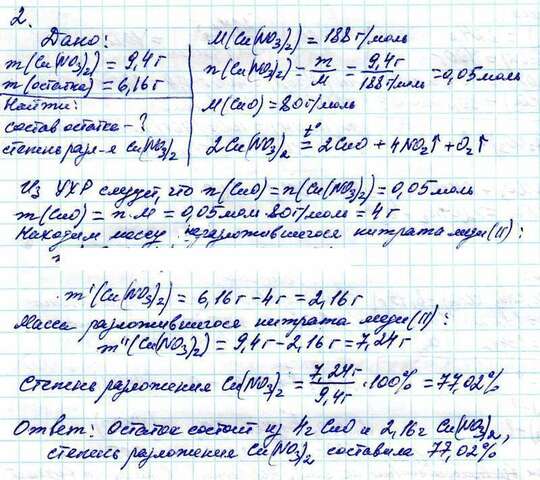 2.
Дано:
m(Cu(NO₃)₂) = 9,4г
m(остатка) = 6,16г
Найти:
состав остатка - ?
степень разл-я Cu(NO₃)₂
M(Cu(NO₃)₂) = 188 г/моль
n(Cu(NO₃)₂) = m/M = 9,4г/188 г/моль = 0,05 моль
M(CuO) = 80 г/моль
2Cu(NO₃)₂ =t° 2CuO + 4NO₂↑ + O₂↑
Из УХР следует, что n(CuO) = n(Cu(NO₃)₂) = 0,05 моль
m(CuO) = n·M = 0,05 моль·80 г/моль = 4 г
Находим массу неразложившегося нитрата меди(II):
m'(Cu(NO₃)₂) = 6,16г - 4г = 2,16г
Масса разложившегося нитрата меди(II):
m''(Cu(NO₃)₂) = 9,4г - 2,16г = 7,24г
Степень разложения Cu(NO₃)₂ = 7,24г/9,4г · 100% = 77,02%
Ответ: Остаток состоит из 4г CuO и 2,16г Cu(NO₃)₂,
степень разложения Cu(NO₃)₂ составила 77,02%